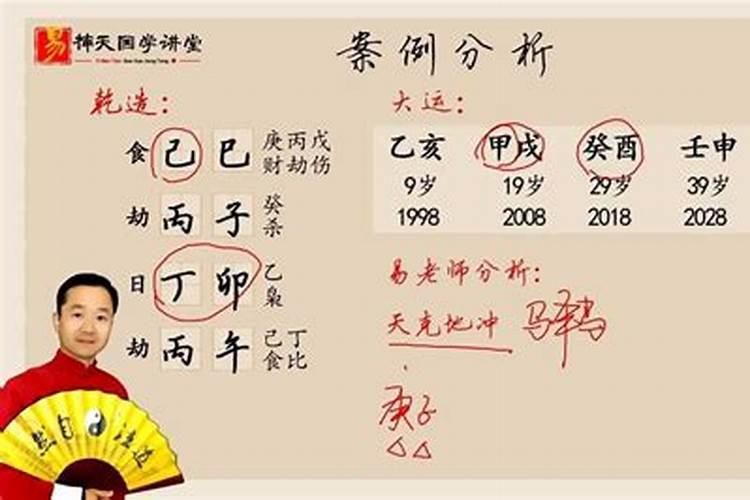 易 補天国学讲堂
案例分析
乾造：
食 己 巳 庚丙戊 财劫伤
劫 丙 子 癸 杀
日 丁 卯 乙 枭
劫 丙 午 己丁 食比
大运：
乙亥 甲戌 癸酉 壬申
9岁 19岁 29岁 39岁
1998 2008 2018 2028
易老师分析：
天克地冲
庚子
道法自然